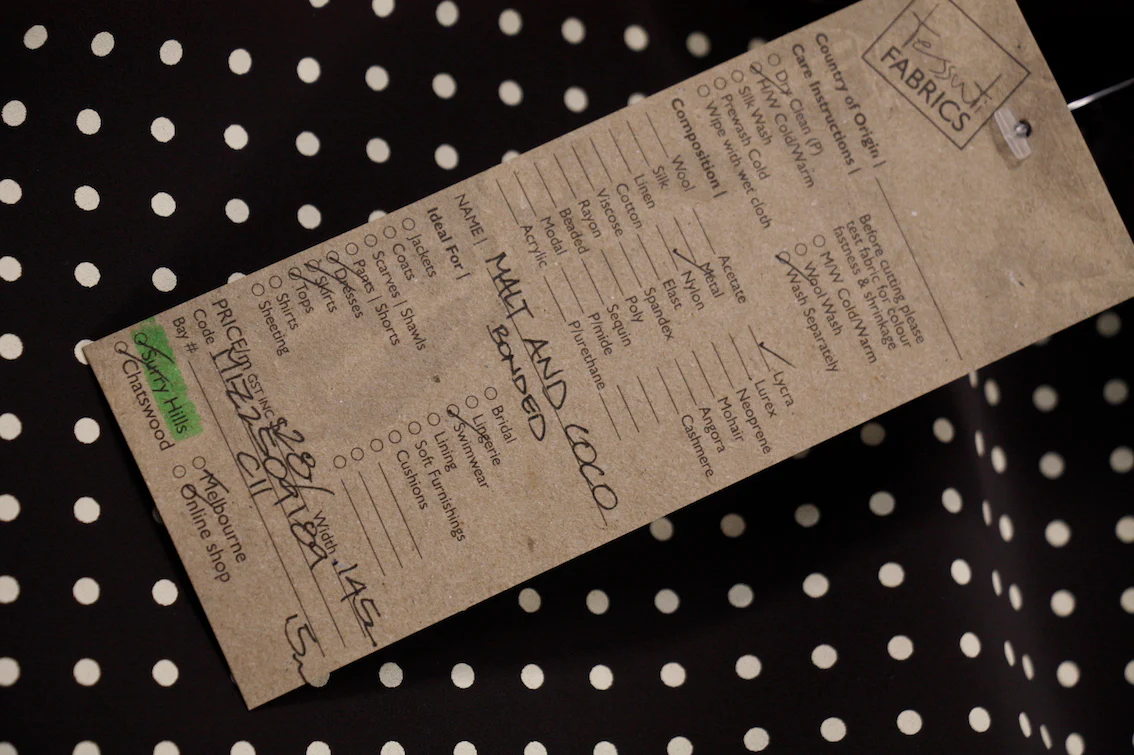 Tessuti
FABRICS
Country of Origin |
Care Instructions |
Dry Clean (P)
H/W Cold/Warm
Silk Wash
Prewash Cold
Wipe with wet cloth
Before cutting please
test fabric for colour
fastness & shrinkage
M/W Cold/Warm
Wool Wash
Wash Separately
Composition |
Wool
Silk
Linen
Cotton
Viscose
Rayon
Beaded
Modal
Acrylic
Acetate
Metal
Nylon
Elast
Spandex
Poly
Sequin
P/mide
P/urethane
Lycra
Lurex
Neoprene
Mohair
Angora
Cashmere
NAME | MALT AND COCO
BONDED
Ideal For |
Jackets
Coats
Scarves | Shawls
Pants | Shorts
Dresses
Skirts
Tops
Shirts
Sheeting
Bridal
Lingerie
Swimwear
Lining
Soft Furnishings
Cushions
PRICE/m GST INC $28/ Width 145
Code
Bay #: C11
15m
Surry Hills
Chatswood
Melbourne
Online shop